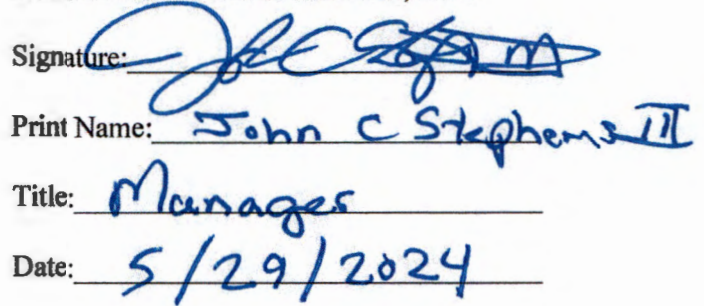 Signature:
Print Name: John C Stephens III
Title: Manager
Date: 5/29/2024